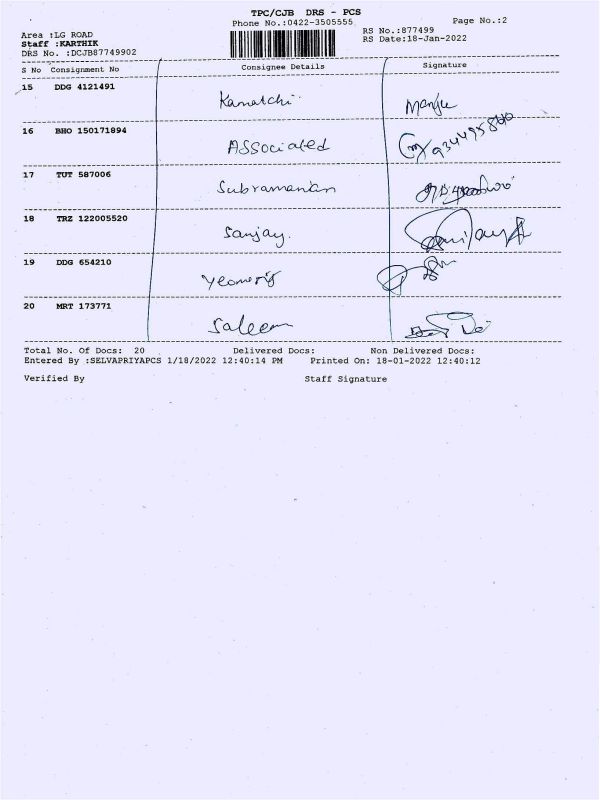 TPC/CJB DRS - PCS
Phone No.:0422-3505555 Page No.:2
Area :LG ROAD RS No.:877499
Staff :KARTHIK RS Date:18-Jan-2022
DRS No. :DCJB87749902
S No Consignment No Consignee Details Signature
15 DDG 4121491 Kamatchi Manju
16 BHO 150171894 Associated
17 TUT 587006 Subramanian
18 TRZ 122005520 Sanjay. Sanjay
19 DDG 654210
20 MRT 173771 Saleem
Total No. Of Docs: 20 Delivered Docs: Non Delivered Docs:
Entered By :SELVAPRIYAPCS 1/18/2022 12:40:14 PM Printed On: 18-01-2022 12:40:12
Verified By Staff Signature